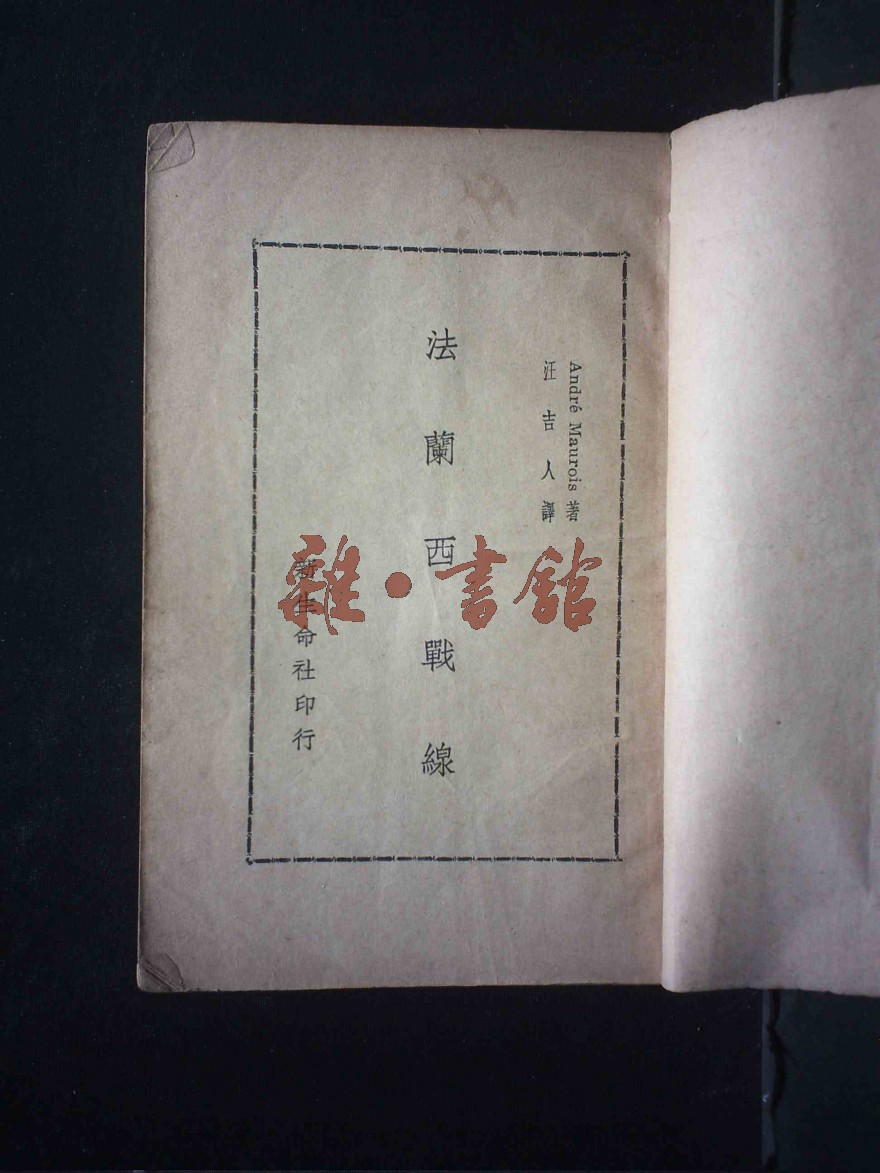 André Maurois 著
汪吉人譯
法蘭西戰線
新生命社印行
雜·書館